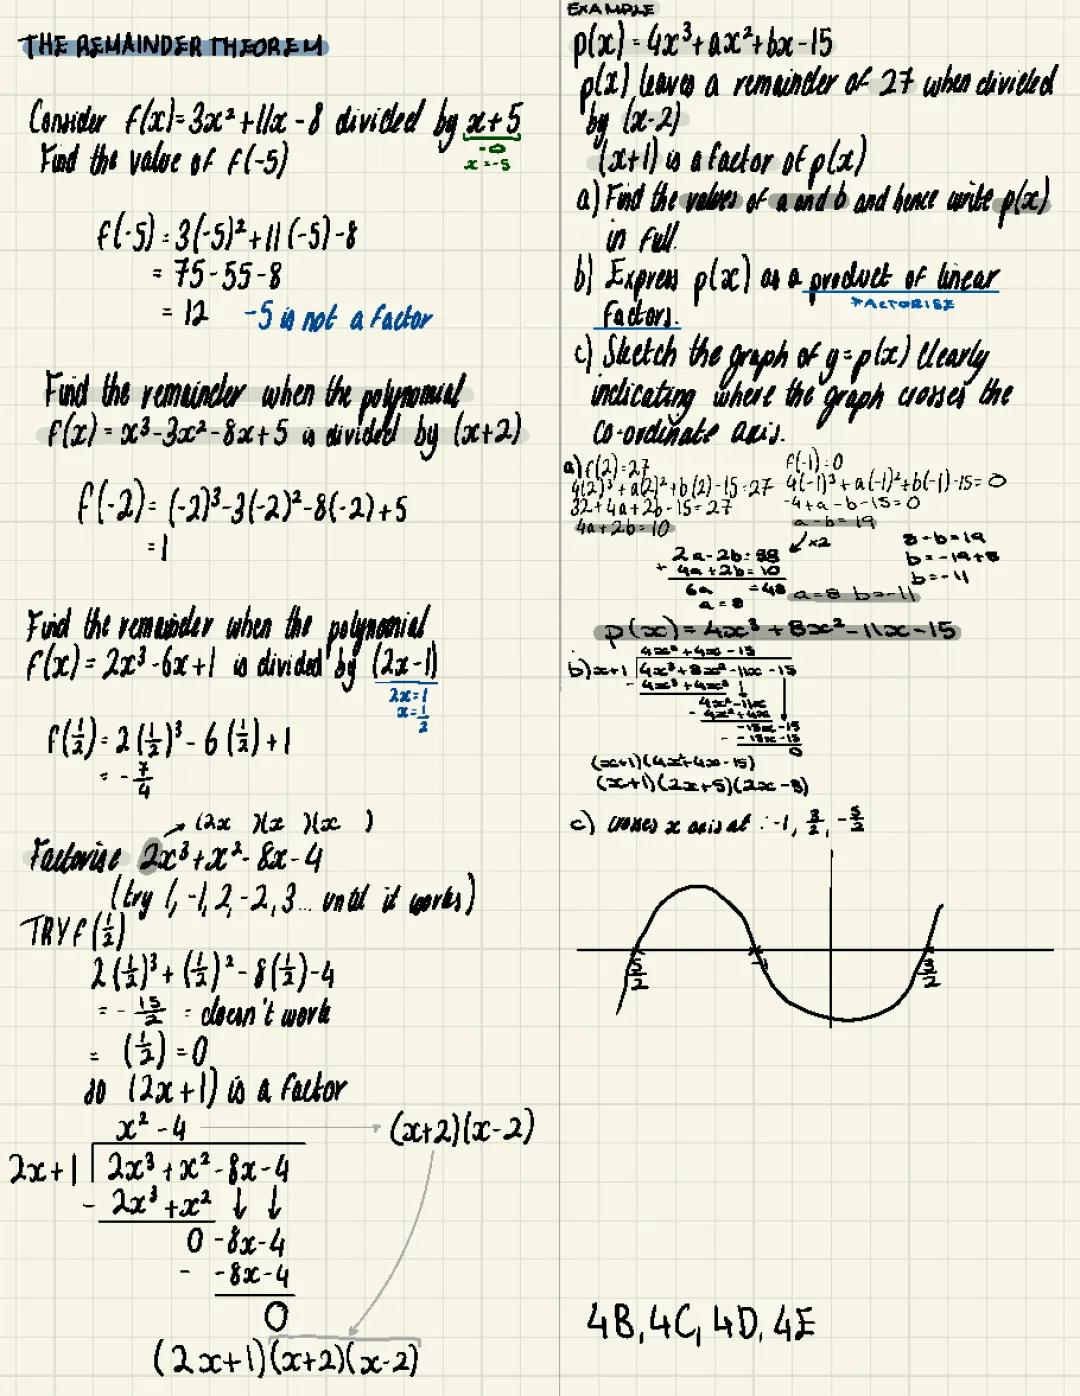 THE REMAINDER THEOREM
Consider f(x)=3x²+11x-8 divided by x+5
=0
x=-5
Find the value of f(-5)
f(-5)=3(-5)²+11(-5)-8
= 75-55-8
= 12 -5 is not a factor
Find the remainder when the polynomial
f(x)=x³-3x²-8x+5 is divided by (x+2)
f(-2)=(-2)³-3(-2)²-8(-2)+5
=1
Find the remainder when the polynomial
f(x)=2x³-6x+1 is divided by (2x-1)
2x=1
x=1/2
f(1/2)=2(1/2)³-6(1/2)+1
= -7/4
(2x )(x )(x )
Factorise 2x³+x²-8x-4
(try 1,-1,2,-2,3... until it works)
TRY f(1/2)
2(1/2)³+(1/2)²-8(1/2)-4
= -15/2 = doesn't work
= (1/2)=0
so (2x+1) is a factor
x²-4 (x+2)(x-2)
2x+1 2x³+x²-8x-4
- 2x³+x² ↓ ↓
0 -8x-4
- -8x-4
0
(2x+1)(x+2)(x-2)
EXAMPLE
p(x)=4x³+ax²+bx-15
p(x) leaves a remainder of 27 when divided
by (x-2)
(x+1) is a factor of p(x)
a) Find the values of a and b and hence write p(x)
in full.
b) Express p(x) as a product of linear
*FACTORISE
factors.
c) Sketch the graph of y=p(x) clearly
indicating where the graph crosses the
co-ordinate axis.
a) f(2)=27 f(-1)=0
4(2)³+a(2)²+b(2)-15=27 4(-1)³+a(-1)²+b(-1)-15=0
32+4a+2b-15=27 -4+a-b-15=0
4a+2b=10 a-b=19
x2 8-b=19
2a-2b=38 b=-19+8
+ 4a+2b=10 b=-11
6a =48 a=8 b=-11
a=8
p(x)=4x³+8x²-11x-15
4x²+4x-15
b) x+1 4x³+8x²-11x-15
- 4x³+4x² ↓
4x²-11x
- 4x²+4x
-15x-15
- -15x-15
0
(x+1)(4x²+4x-15)
(x+1)(2x+5)(2x-3)
c) crosses x axis at :-1, 3/2, -5/2
5/2 -1 3/2
4B, 4C, 4D, 4E